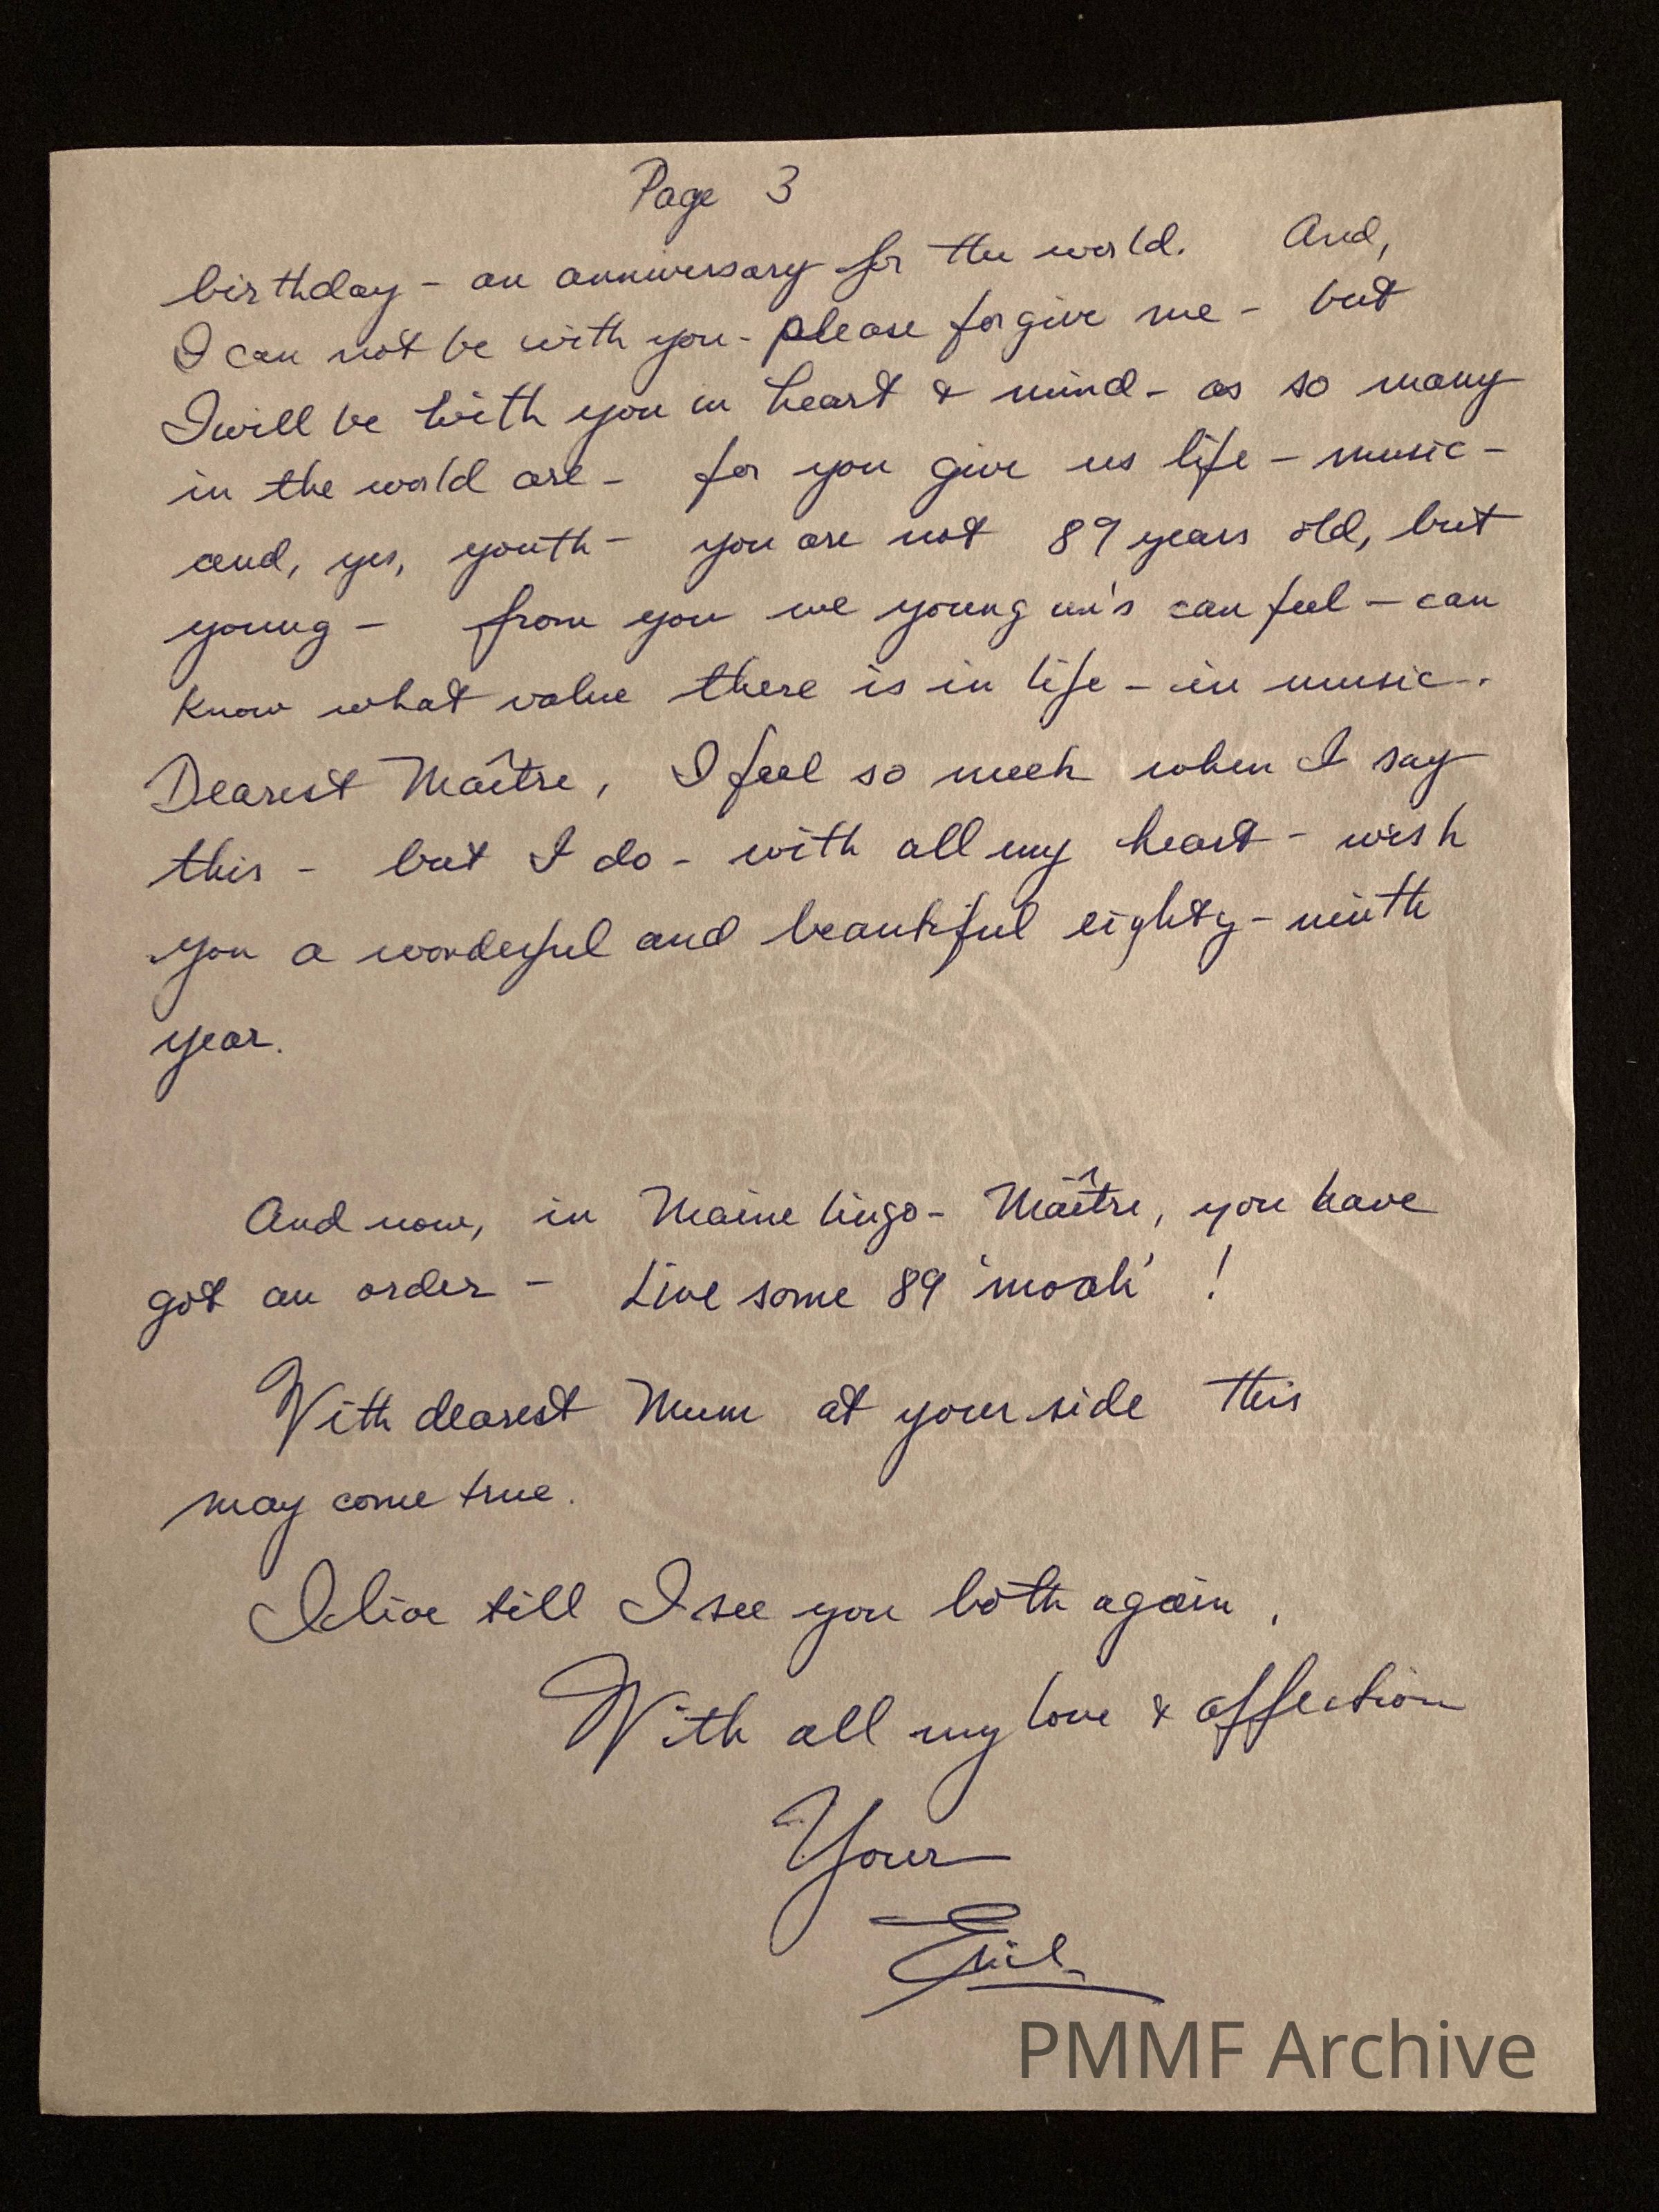 Page 3
birthday - an anniversary for the world. And,
I can not be with you - please forgive me - but
I will be with you in heart & mind - as so many
in the world are - for you give us life - music -
and, yes, youth - you are not 89 years old, but
young - from you we young un's can feel - can
know what value there is in life - in music.
Dearest Maître, I feel so much when I say
this - but I do - with all my heart - wish
you a wonderful and beautiful eighty-ninth
year.
And now, in Maine lingo - Maître, you have
got an order - Live some 89 'moah' !
With dearest Mum at your side this
may come true.
I live till I see you both again.
With all my love & affection
Your
PMMF Archive